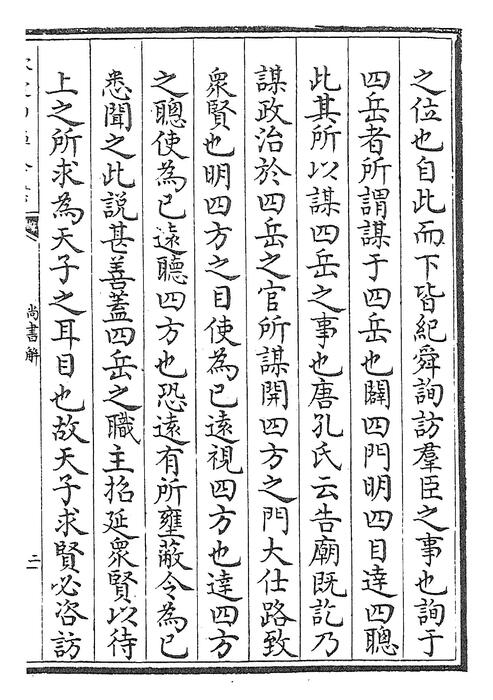 之位也自此而下皆紀舜詢訪羣臣之事也詢于
四岳者所謂謀于四岳也闢四門明四目達四聰
此其所以謀四岳之事也唐孔氏云告廟既訖乃
謀政治於四岳之官所謀開四方之門大仕路致
衆賢也明四方之目使為已遠視四方也達四方
之聰使為已遠聽四方也恐遠有所壅蔽令為已
悉聞之此說甚善蓋四岳之職主招延衆賢以待
上之所求為天子之耳目也故天子求賢必咨訪
尚書解
二